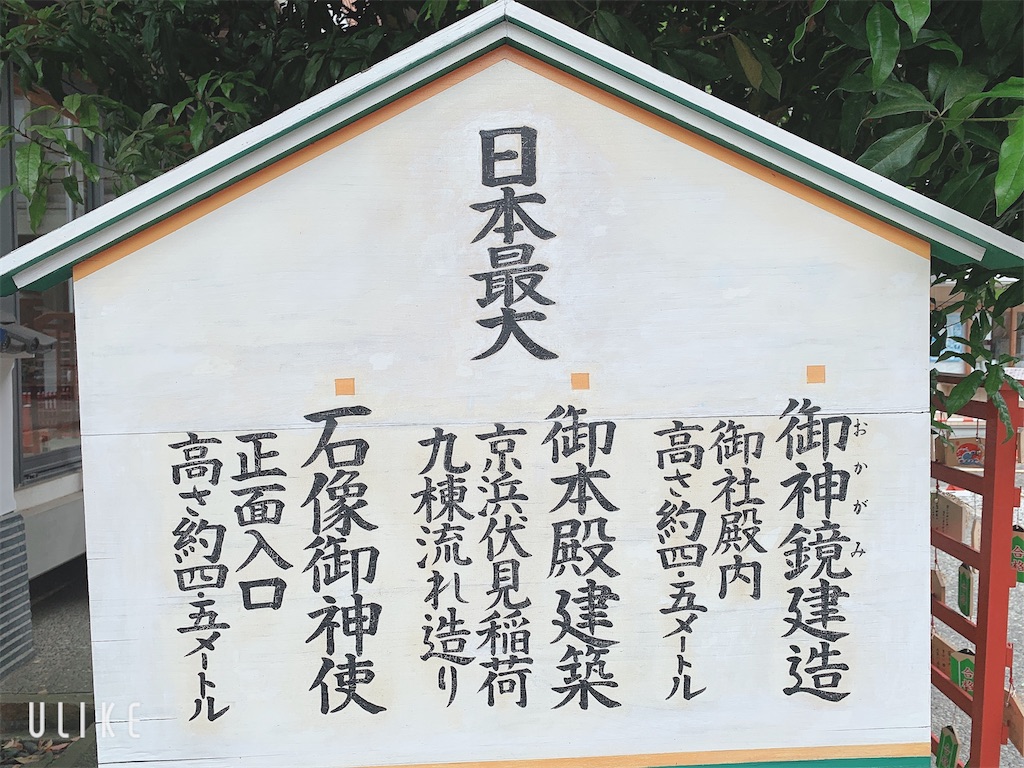 日本最大
御神鏡建造
おかがみ
御社殿内
高さ約四・五メートル
御本殿建築
京浜伏見稲荷
九棟流れ造り
石像御神使
正面入口
高さ約四・五メートル
合格
合格
ULIKE